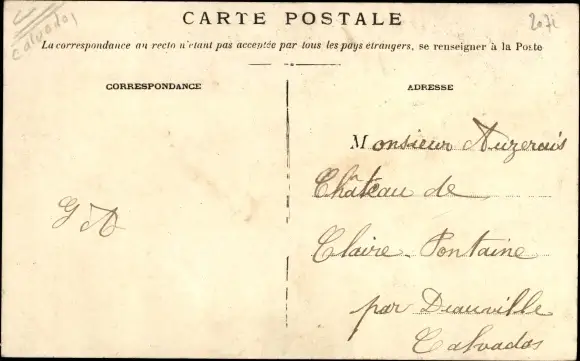 Calvados
2071
CARTE POSTALE
La correspondance au recto n'étant pas acceptée par tous les pays étrangers, se renseigner à la Poste
CORRESPONDANCE
ADRESSE
Monsieur Auzerais
Château de
Claire-Fontaine
par Deauville
Calvados
G A